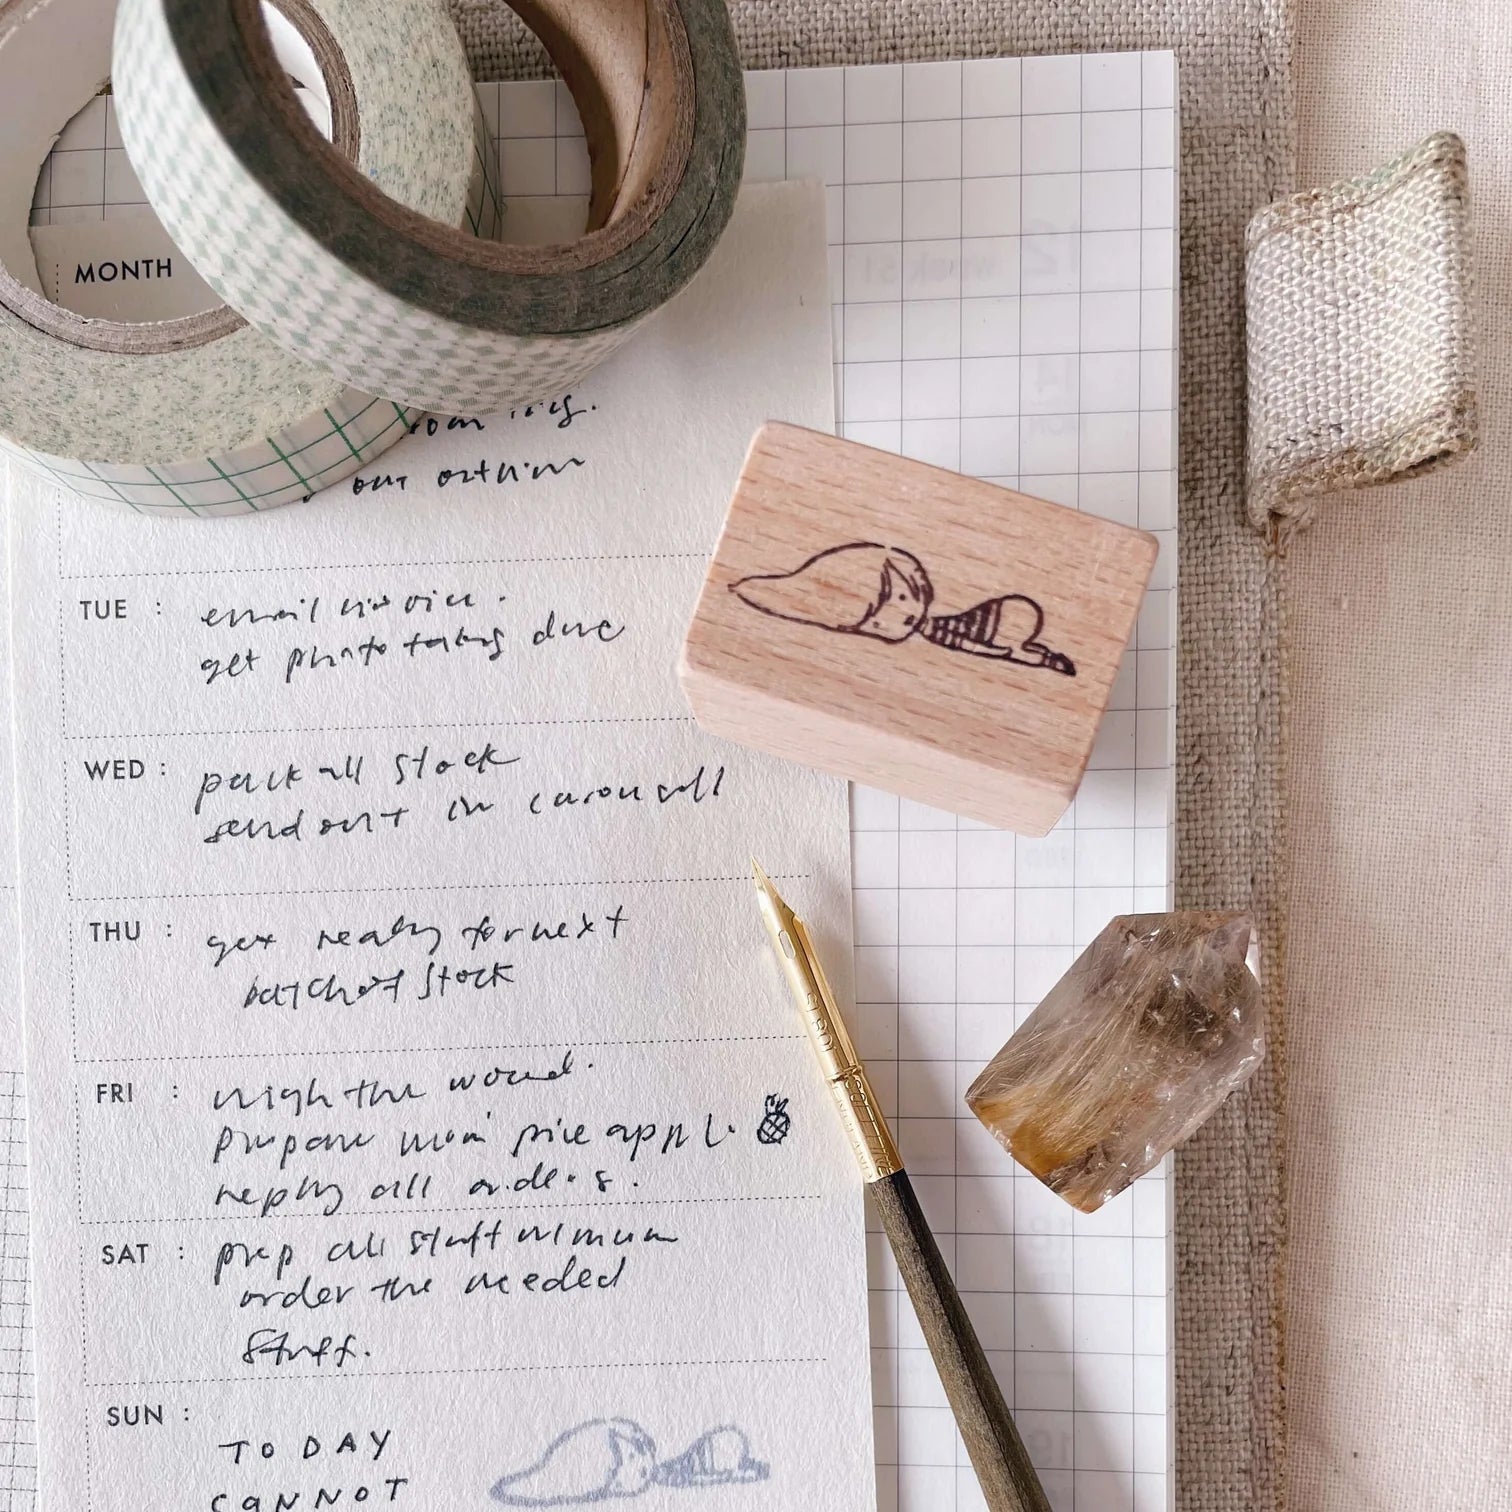 MONTH
out
TUE :
email invoice.
get photo taking done
WED :
pack all stock
send out in carousell
THU :
get ready for next
batch of stock
FRI :
weigh the wound.
prepare mom pineapple
reply all orders.
SAT :
prep all stuff
order the needed
stuff.
SUN :
TODAY
CANNOT